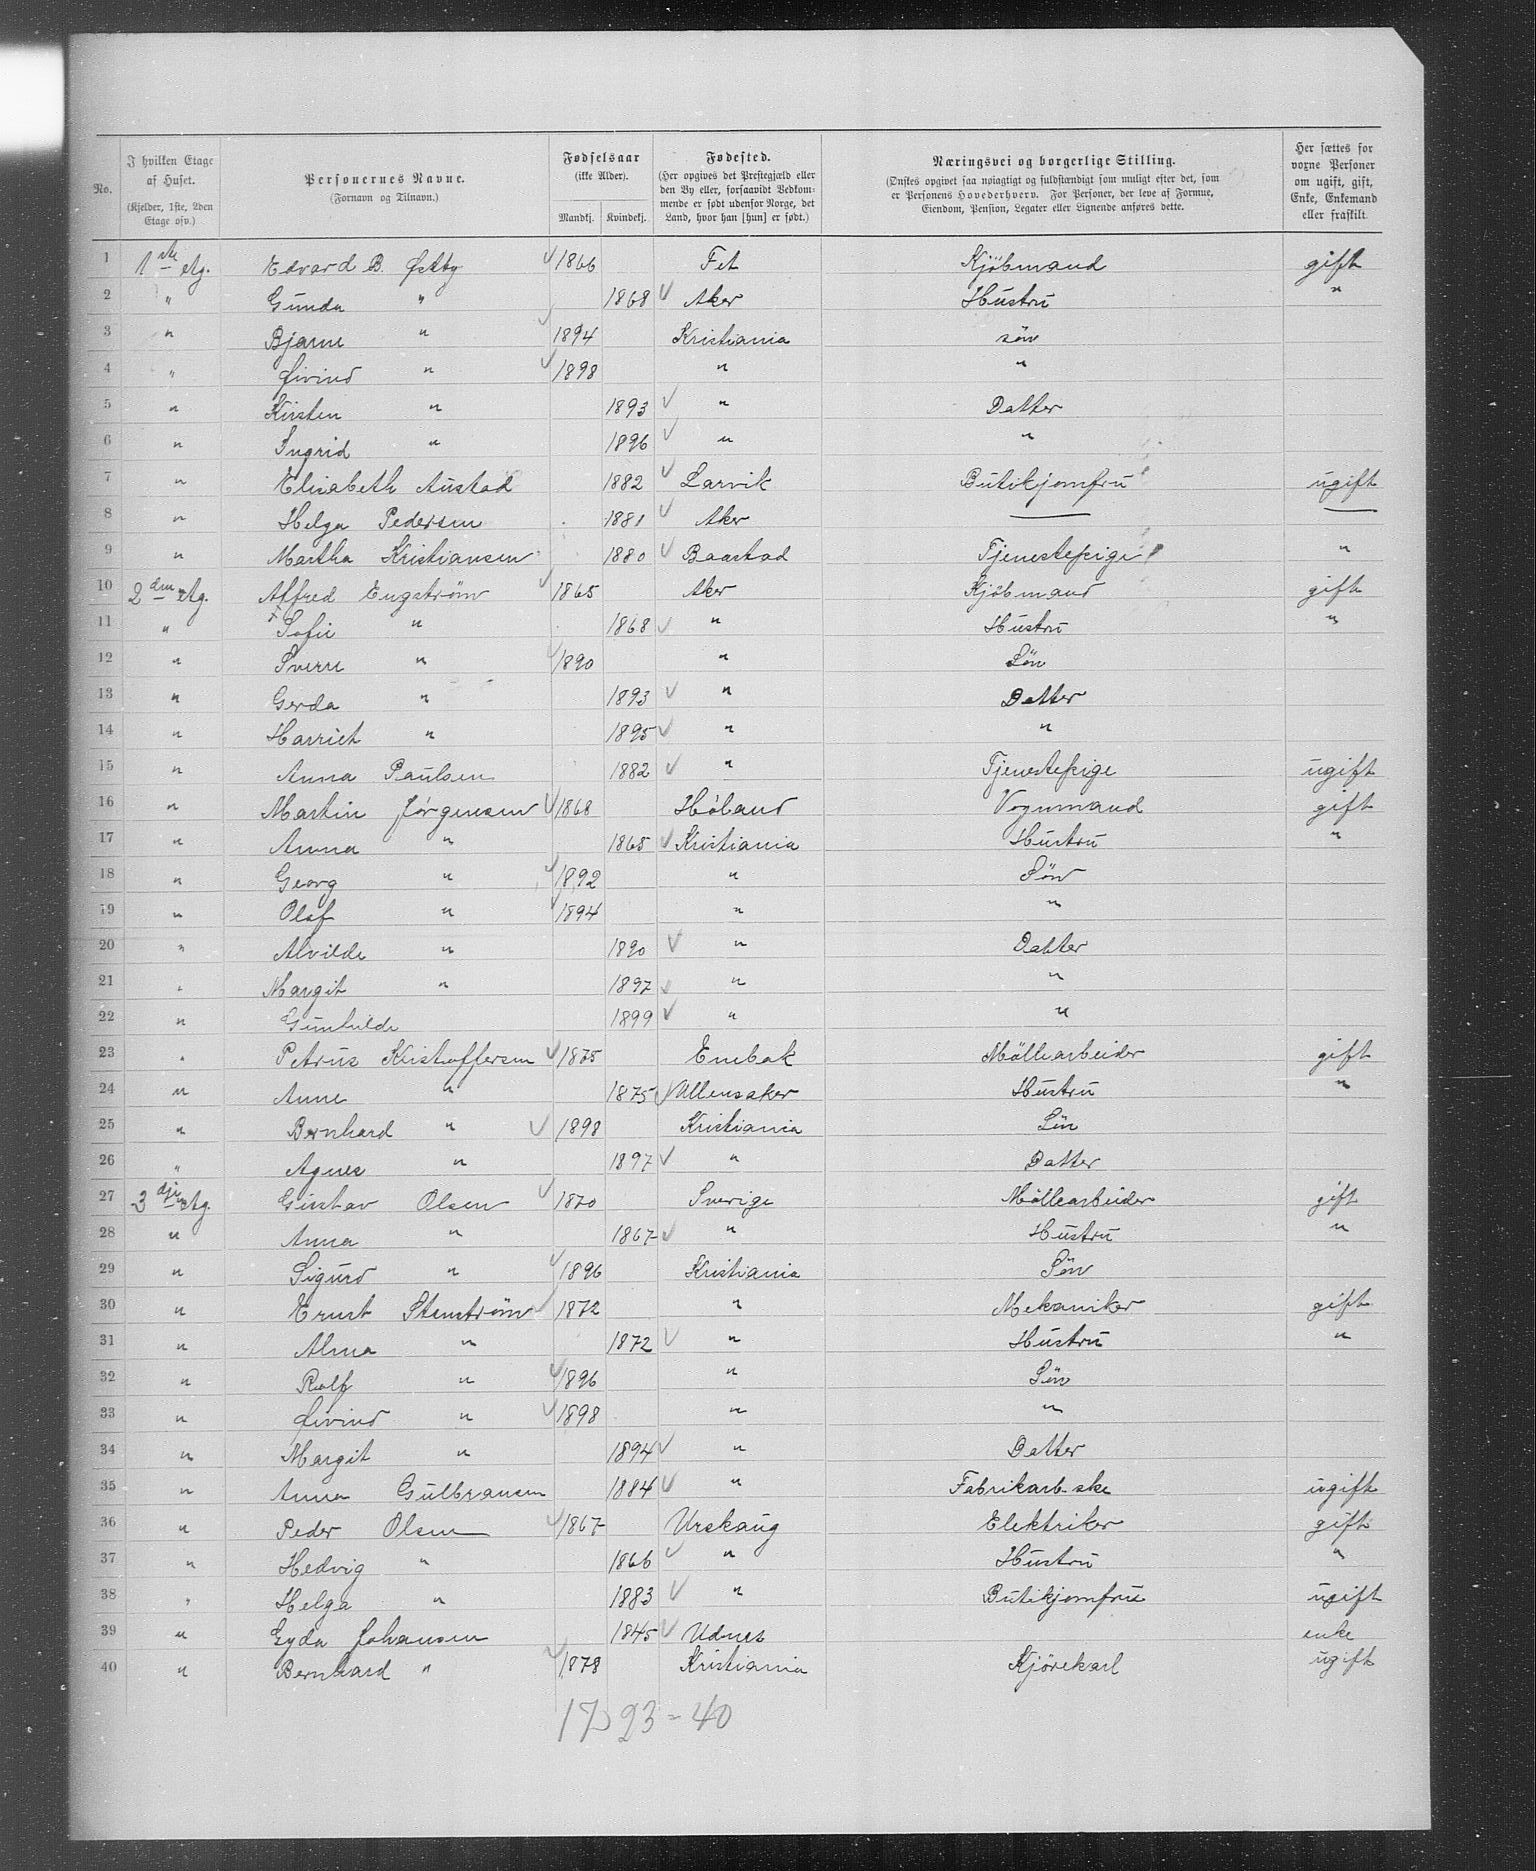 No. | I hvilken Etage af Huset. (Kjelder, 1ste, 2den Etage osv.) | Personernes Navne. (Fornavn og Tilnavn.) | Fødselsaar (ikke Alder). Mandkj. | Kvindekj. | Fødested. (Her opgives det Prestegjæld eller den By eller, forsaavidt Vedkommende er født udenfor Norge, det Land, hvor han [hun] er født.) | Næringsvei og borgerlige Stilling. (Ønskes opgivet saa nøiagtigt og fuldstændigt som muligt efter det, som er Personens Hovederhverv. For Personer, der leve af Formue, Eiendom, Pension, Legater eller Lignende anføres dette. | Her sættes for voxne Personer om ugift, gift, Enke, Enkemand eller fraskilt.
1 | 1ste etg. | Edvard B. Østby | 1866 | | Fet | Kjöbmand | gift
2 | " | Gunda " | | 1868 | Aker | Hustru | "
3 | " | Bjarne " | 1894 | | Kristiania | sön
4 | " | Øivind " | 1898 | | " | "
5 | " | Kirsten " | | 1893 | " | Datter
6 | " | Ingrid " | | 1896 | " | "
7 | " | Elisabeth Austad | | 1882 | Larvik | Butikjomfru | ugift
8 | " | Helga Pedersen | | 1881 | Aker | — | —
9 | " | Martha Kristiansen | | 1880 | Baastad | Tjenestepige | "
10 | 2den etg. | Alfred Engström | 1865 | | Aker | Kjöbmand | gift
11 | " | Sofie " | | 1868 | " | Hustru | "
12 | " | Sverre " | 1890 | | " | Sön
13 | " | Gerda " | | 1893 | " | Datter
14 | " | Harriet " | | 1895 | " | "
15 | " | Anna Paulsen | | 1882 | " | Tjenestepige | ugift
16 | " | Martin Jörgensen | 1868 | | Höland | Vognmand | gift
17 | " | Anna " | | 1865 | Kristiania | Hustru | "
18 | " | Georg " | 1892 | | " | Sön
19 | " | Olaf " | 1894 | | " | "
20 | " | Alvilde " | | 1890 | " | Datter
21 | " | Margit " | | 1897 | " | "
22 | " | Gunhilde | | 1899 | " | "
23 | " | Petrus Kristoffersen | 1875 | | Enebak | Möllearbeider | gift
24 | " | Anne " | | 1875 | Ullensaker | Hustru | "
25 | " | Bernhard " | 1898 | | Kristiania | Sön
26 | " | Agnes " | | 1897 | " | Datter
27 | 3dje etg. | Gustav Olsen | 1870 | | Sverige | Möllearbeider | gift
28 | " | Anna " | | 1867 | " | Hustru | "
29 | " | Sigurd " | 1896 | | Kristiania | Sön
30 | " | Ernst Stenström | 1872 | | " | Mekaniker | gift
31 | " | Alma " | | 1872 | " | Hustru | "
32 | " | Rolf " | 1896 | | " | Sön
33 | " | Øivind " | 1898 | | " | "
34 | " | Margit " | | 1894 | " | Datter
35 | " | Anna Gulbransen | | 1884 | " | Fabrikarb.ske | ugift
36 | " | Peder Olsen | 1867 | | Urskaug | Elektriker | gift
37 | " | Hedvig " | | 1866 | " | Hustru | "
38 | " | Helga " | | 1883 | " | Butikjomfru | ugift
39 | " | Gyda Johansen | | 1845 | Udnes | | enke
40 | " | Bernhard " | 1878 | | Kristiania | Kjörekarl | ugift
17 23 = 40